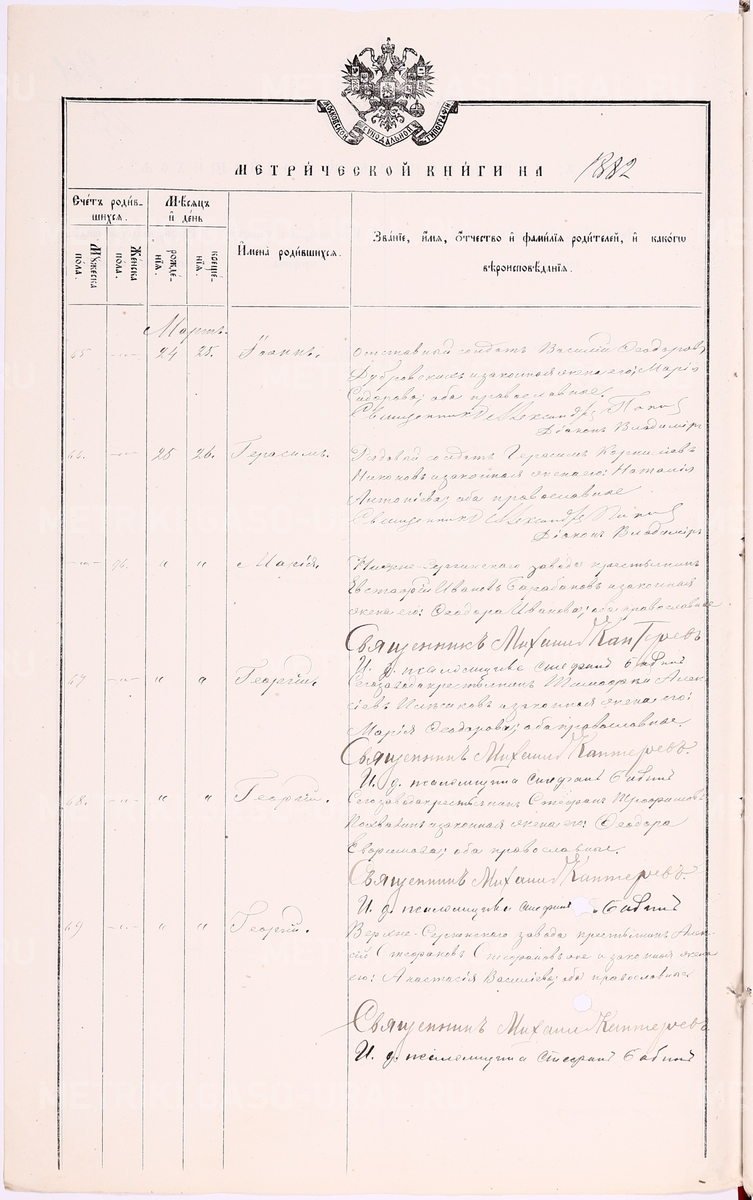 МОСКОВСКОЙ СѴНОДАЛЬНОЙ ТИПОГРАФІИ
МЕТРИ́ЧЕСКОЙ КНИ́ГИ НА 1882
Сче́тъ роди́в-
шихся.
Мѣ́сяцъ
и҆ де́нь
Имена̀ роди́вшихся.
Зва́нїе, и҆́мя, ѻ҆́тчество и҆ фами́лїѧ роди́телей, и҆ како́гѡ
вѣроисповѣ́данїѧ.
Мꙋ́жеска
по́ла.
Же́нска
по́ла.
рожде-
нїѧ.
креще-
нїѧ.
Мартъ.
65 -"- 24 25. Іоаннъ. отставный солдатъ Василій Ѳеодоровъ
Дубровскихъ и законная жена его: Марія
Сидорова; оба православные.
Священникъ Александръ Поповъ
Діаконъ Владимiръ
66. -"- 25 26. Герасимъ. Рядовой солдатъ Герасимъ Корниловъ
Никоновъ и законная жена его: Наталія
Антоніева; оба православные
Священникъ Александръ Поповъ
Діаконъ Владимiръ
-"- " " Марія. Нижне-Сергинскаго завода крестьянинъ
Евстафій Ивановъ Барабановъ и законная
жена его: Ѳеодора Иванова; оба православные
Священникъ Михаилъ Каптеревъ
И. д. псаломщика Стефанъ Бабинъ
67 -"- " " Георгій. Сего завода крестьянинъ Тимофей Алек-
сіевъ и законная жена его:
Марія Ѳеодорова; оба православные.
Священникъ Михаилъ Каптеревъ.
И. д. псаломщика Стефанъ Бабинъ
68. -"- " " Георгій. Сего завода крестьянинъ Стефанъ Трофимовъ
и законная жена его: Ѳеодора
Евфимова; оба православные.
Священникъ Михаилъ Каптеревъ.
И. д. псаломщика Стефанъ Бабинъ
69 -"- " " Георгій. Верхне-Сергинскаго завода крестьянинъ Алек-
сій Стефановъ Стефановъ же и законная жена
его: Анастасія Василіева; оба православные
Священникъ Михаилъ Каптеревъ
И. д. псаломщика Стефанъ Бабинъ